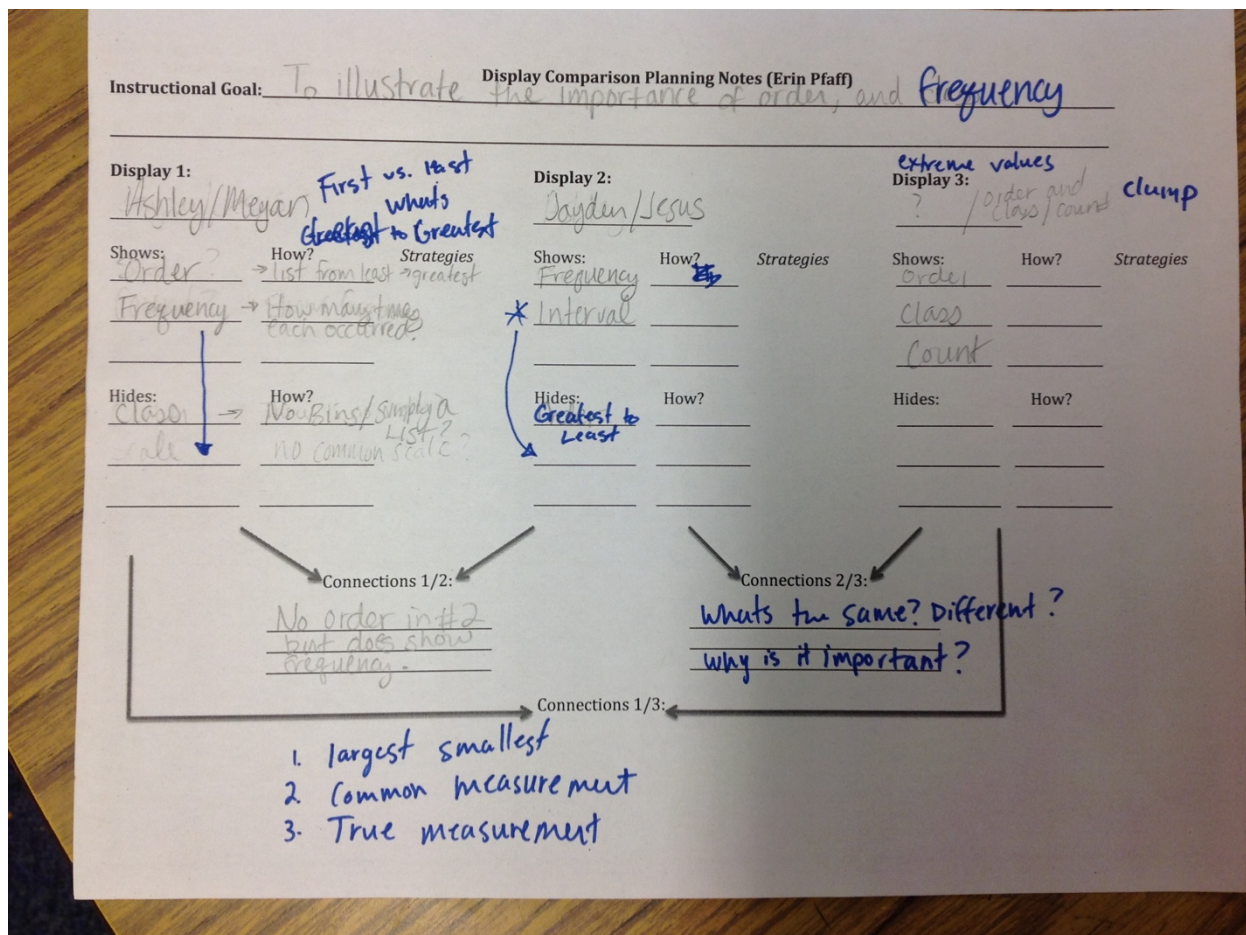 Display Comparison Planning Notes (Erin Pfaff)
Instructional Goal: To illustrate the importance of order, and frequency
Display 1:
Ashley/Megan
First vs. last
whats
to Greatest
Shows: How? Strategies
Order? → list from least → greatest
Frequency → How many times
each occurred?
Hides: How?
Class → No Bins/simply a
LIST?
no common scale?
Display 2:
Jayden/Jesus
Shows: How? Strategies
Frequency
Interval
Hides: How?
Greatest to
Least
extreme values
Display 3:
? /order and
class/count
clump
Shows: How? Strategies
Order
Class
Count
Hides: How?
Connections 1/2:
No order in #2
but does show
frequency.
Connections 2/3:
Whats the same? Different?
Why is it important?
Connections 1/3:
1. largest smallest
2 Common measurement
3. True measurement